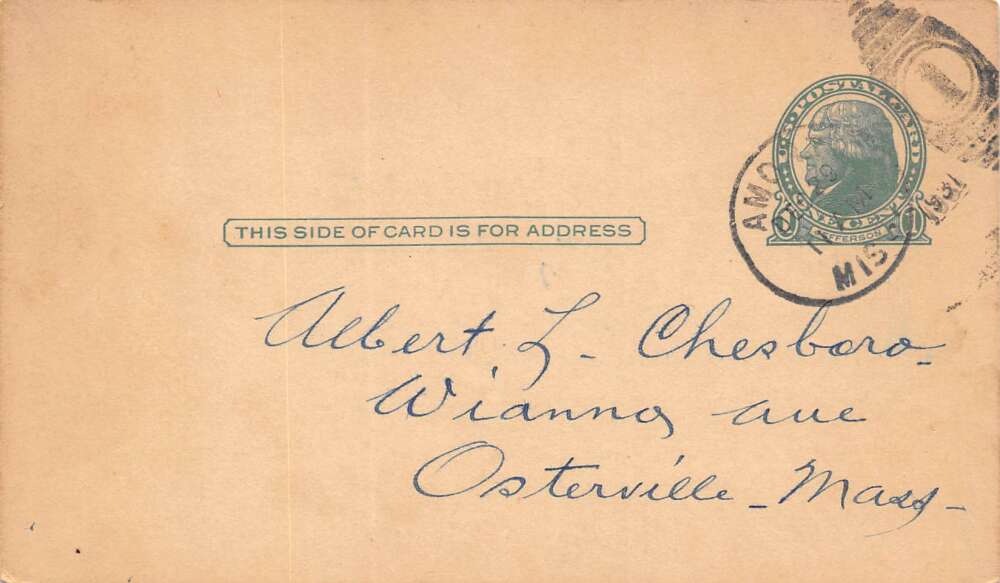 U.S. POSTAL CARD
ONE CENT
1 1
JEFFERSON
1
AMO
MISS
1931
THIS SIDE OF CARD IS FOR ADDRESS
Albert L. Chesboro
Wianno ave
Osterville - Mass -